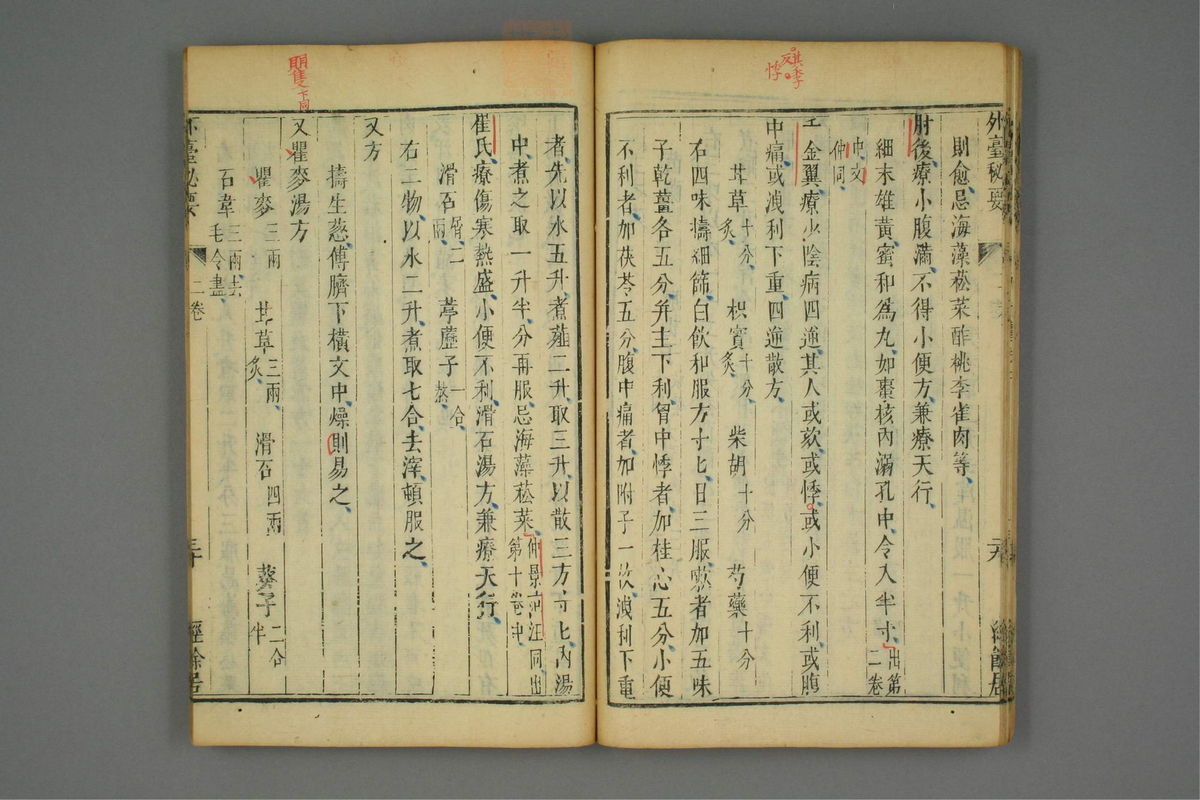 外臺秘要
卷
經餘居
則愈忌海藻菘菜酢桃李雀肉等
肘後療小腹滿不得小便方兼療天行
細末雄黃蜜和為丸如棗核內溺孔中令入半寸出第二卷
中文仲同
金翼療少陰病四逆其人或欬或悸或小便不利或腹
中痛或洩利下重四逆散方
甘草十分炙 枳實十分炙 柴胡十分 芍藥十分
右四味擣細篩白飲和服方寸匕日三服嗽者加五味
子乾薑各五分并主下利胷中悸者加桂心五分小便
不利者加茯苓五分腹中痛者加附子一枚洩利下重
者先以水五升煮薤二升取三升以散三方寸匕內湯
中煮之取一升半分再服忌海藻菘菜仲景範汪同出第十卷中
崔氏療傷寒熱盛小便不利滑石湯方兼療天行
滑石屑二兩 葶藶子一合熬
右二物以水二升煮取七合去滓頓服之
又方
擣生蔥傅臍下橫文中燥則易之
又瞿麥湯方
瞿麥三兩 甘草三兩炙 滑石四兩 葵子二合半
石韋三兩去毛令盡
外臺秘要
二卷
三十
經餘居
下同